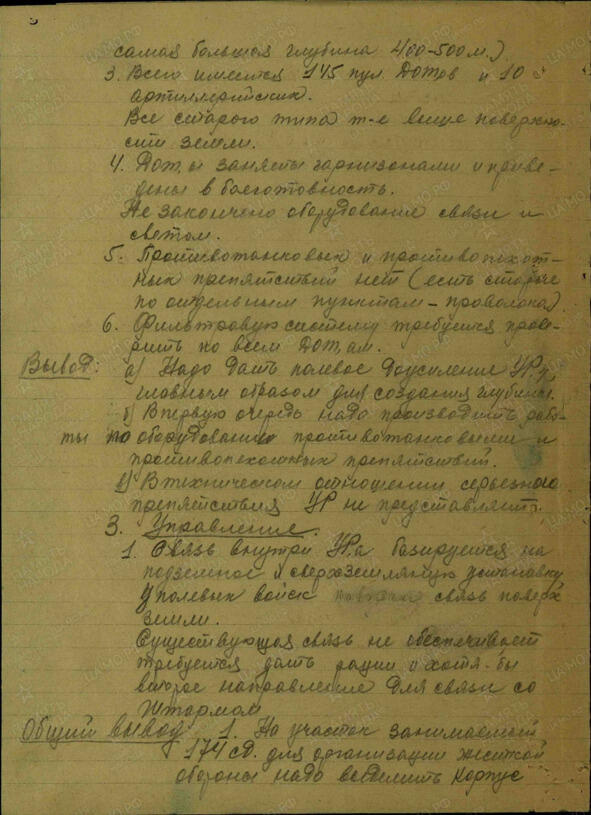 самая большая глубина 400-500м.)
3. Всего имеется 145 пул. Дотов и 10
артиллерийских.
Все старого типа т-е выше поверхно-
сти земли.
4. Доты заняты гарнизонами и приве-
дены в боеготовность.
Не закончено оборудование связи и
светом.
5. Противотанковых и противопехот-
ных препятствий нет (есть старые
по отдельным пунктам - проволока)
6. Фильтровую систему требуется прове-
рить по всем Дотам.
Вывод: а) Надо дать полевое доусиление УРу,
главным образом для создания глубины.
б) В первую очередь надо производить рабо-
ты по оборудованию противотанковыми и
противопехотных препятствий.
в) В техническом отношении серьезного
препятствия УР не представляет.
3. Управление.
1. Связь внутри УРа базируется на
подземное и сверхземляную установку
У полевых войск связь поверх
земли.
Существующая связь не обеспечивает
требуется дать рации и хотя-бы
второе направление для связи со
Штармом
Общий вывод 1. На участок занимаемый
174 сд. для организации жесткой
обороны надо выделить Корпус